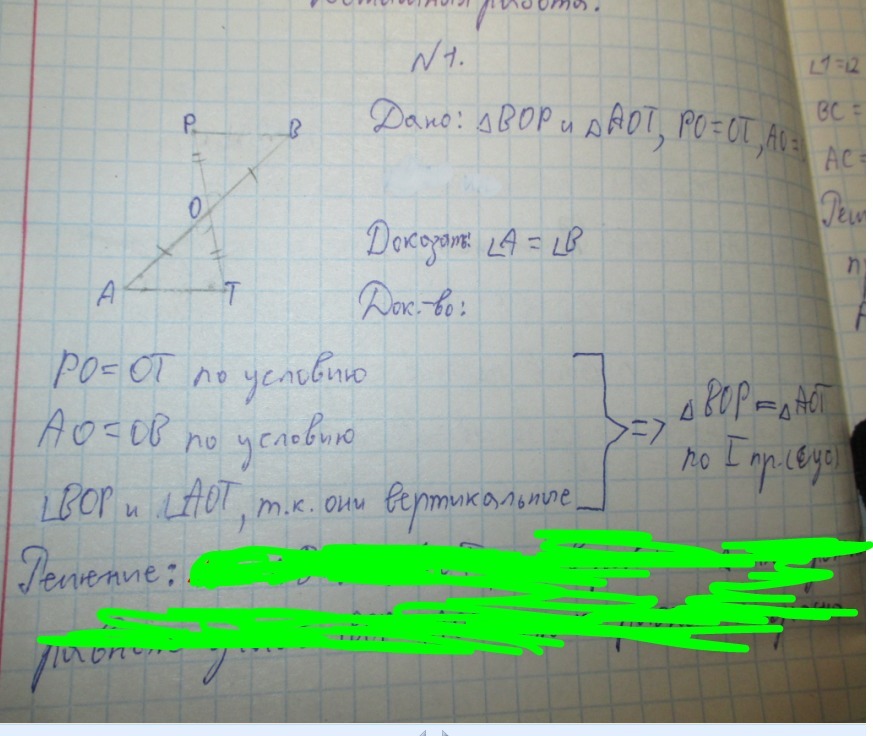 работа.
N 1.
P B
O
A T
Дано: ΔBOP и ΔAOT, PO=OT, AO=
Доказать: ∠A = ∠B
Док.-во:
PO = OT по условию
AO = OB по условию
∠BOP и ∠AOT, т.к. они вертикальные
=> ΔBOP = ΔAOT
по I пр.(сус)
Решение:
∠1=∠2
BC =
AC =